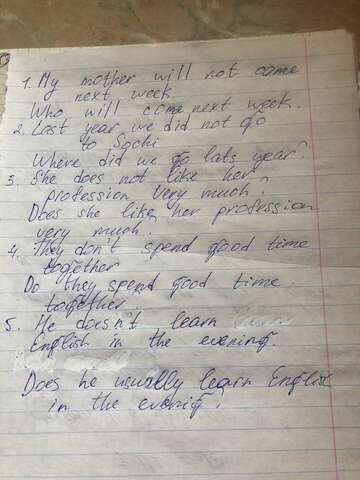 1. My mother will not come
next week.
Who will come next week.
2. Last year we did not go
to Sochi
Where did we go lats year?
3. She does not like her
profession very much?
Does she like her profession
very much?
4. They don't spend good time
together
Do they spend good time
together
5. He doesn't learn
English in the evening.
Does he usually learn English
in the evenig?